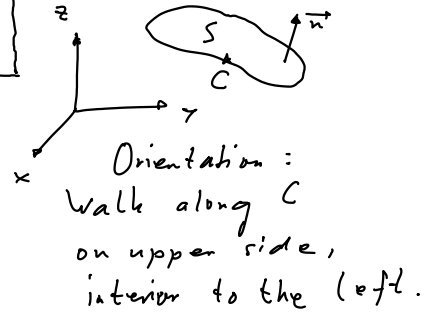 z
S
n
C
y
x
Orientation :
Walk along C
on upper side,
interior to the left.